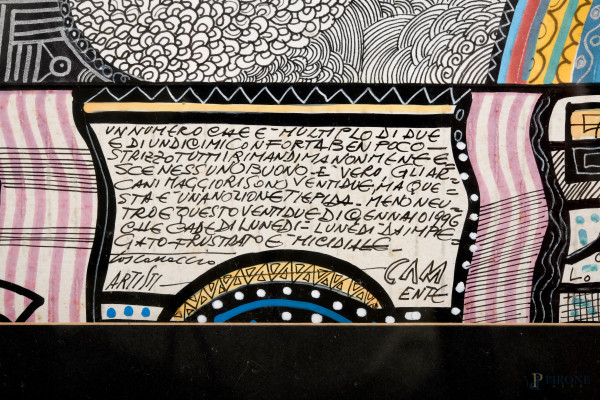 UN NUMERO CHE È MULTIPLO DI DUE
E DI UNDICI MI CONFORTA BEN POCO
STRIZZO TUTTI I RIMANDI MA NON ME NE E-
SCE NESSUNO BUONO - E VERO, GLI AR-
CANI MAGGIORI SONO VENTIDUE, MA QUE-
STA E UNA NOZIONE TIEPIDA - MENO NEU-
TRO E QUESTO VENTIDUE DI GENNAIO 1996
CHE CADE DI LUNEDI - LUNEDI DA IMPIE-
GATO FRUSTRATO E MICIDIALE -
ARTISTI
CAM
ENTE
PIRONE